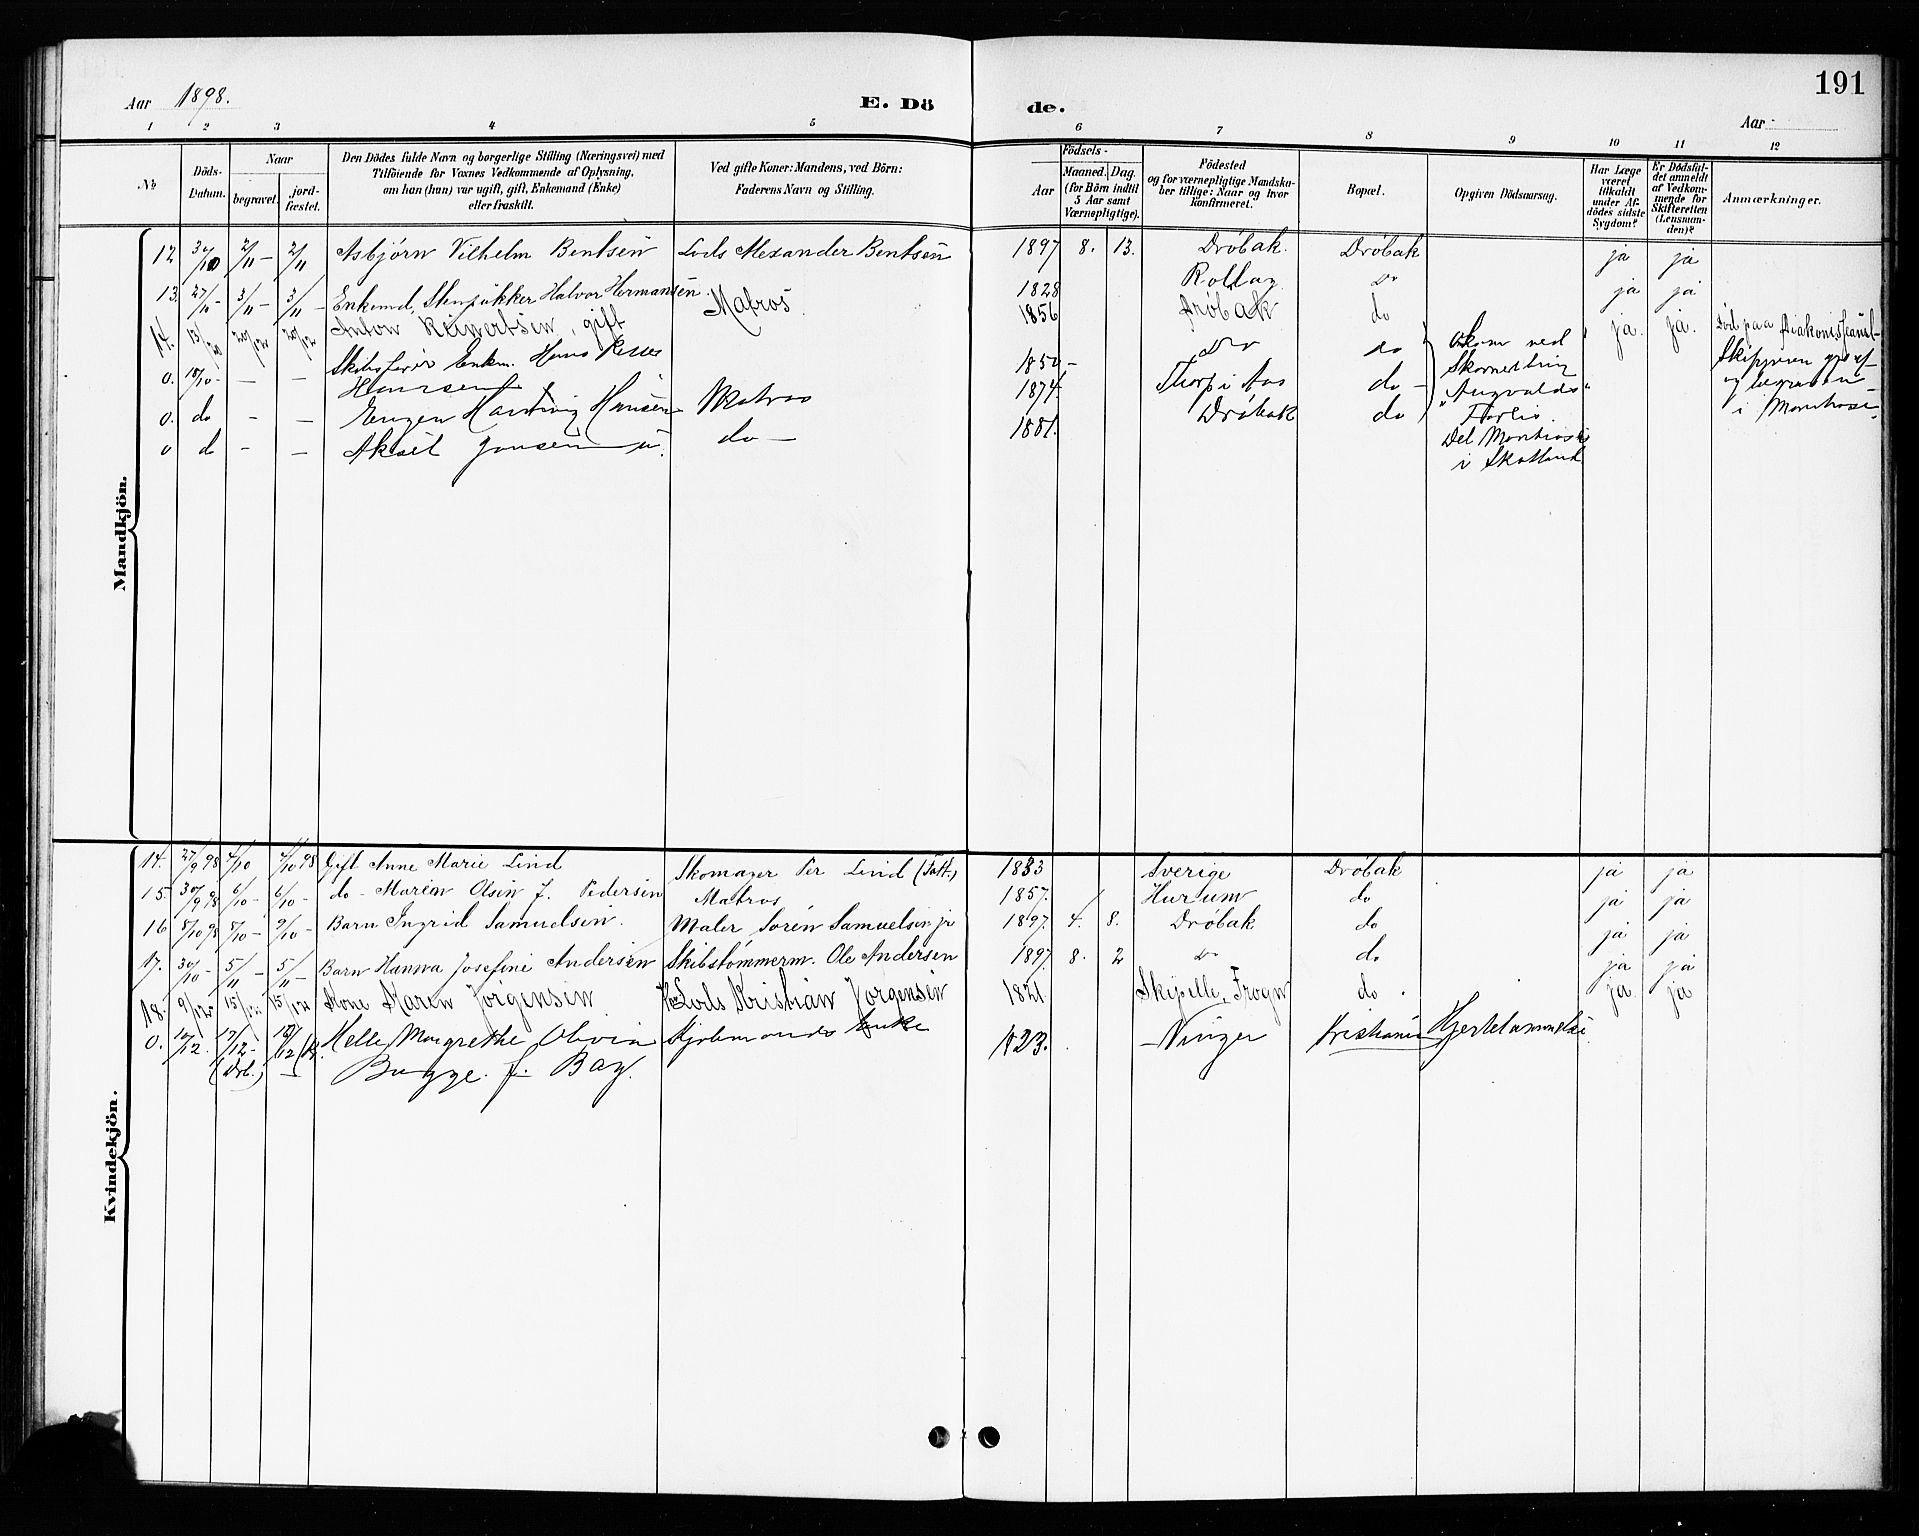 191
Aar 1898.
E. Dö de.
Aar
1 2 3 4 5 6 7 8 9 10 11 12
No
Döds-Datum.
Naar
begravet.
jord-fæstet.
Den Dödes fulde Navn og borgerlige Stilling (Næringsvei) med
Tilföiende for Voxnes Vedkommende af Oplysning,
om han (hun) var ugift, gift, Enkemand (Enke)
eller fraskilt.
Ved gifte Koner: Mandens, ved Börn:
Faderens Navn og Stilling.
Födsels-
Aar
Maaned. Dag.
(for Börn indtil
5 Aar samt
Værnepligtige).
Födested
og for værnepligtige Mandska-
ber tillige: Naar og hvor
konfirmeret.
Bopæl.
Opgiven Dödsaarsag.
Har Læge
været
tilkaldt
under Af-
dödes sidste
Sygdom?
Er Dödsfal-
det anmeldt
af Vedkom-
mende for
Skifteretten
(Lensman-
den)?
Anmærkninger.
Mandkjön.
12 2/11 - 2/11 Asbjørn Vilhelm Bentsen Lods Alexander Bentsen 1897 8. 13. Drøbak. Drøbak ja ja
13. 3/11 - 3/11 - Enkemd. Halvor Hermansen 1828 Rollag Do ja ja
14. 20/12 20/12 Anton Reinertsen, gift Matros 1856 Drøbak do ja. ja. Død paa
0. 18/10 - - - Skibsfører Enkm. Hans 1850 - Do do Omkom ved Skipperen
Hansen Skonnerten
0. do - - Eugen Hartvig Hansen Matros 1874. Thorp i Aas do - "Augvalds" og begraven
0 d - - Aksel Jonsen u. do - 1881. Drøbak do Forlis. i Montrose
Del Montrose
i Skotland
Kvindekjön.
14. 27/9 98 4/10 4/10 98 Gift Anne Marie Lind Skomager Per Lind 1833 Sverige Drøbak ja ja
15. 30/9 98 6/10 - 6/10 - do - Maren Olsen f. Pedersen Matros 1857. Hurum do ja ja
16 5/10 98 8/10 - 9/10 - Barn Ingrid Samuelsen. Maler Søren Samuelsen jr 1897. 4. 8. Drøbak do ja ja
17. 30/10 - 5/11 - 5/11 - Barn Hanna Josefine Andersen Skibstømmerm. Ole Andersen 1897. 8. 2 Do do ja ja
18. 9/12 15/12 15/12 Kone Karen Jørgensen Lods Kristian Jørgensen 1821 Frogn do. ja ja
0. 10/12. 17/12 - Helle Margrethe Olivia Enke 1823. Vinger Kristiania
(Drb.) Bugge. f. Bay.